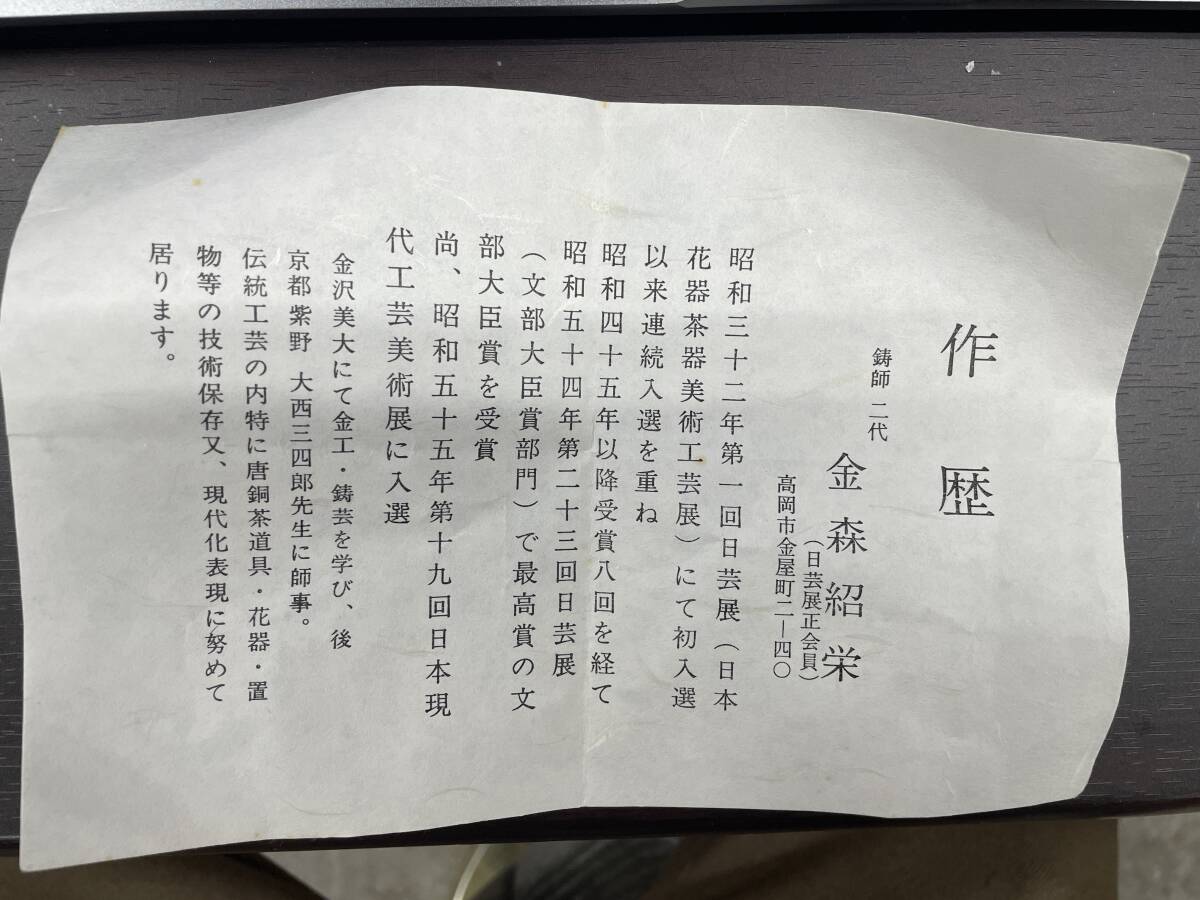 作歴
鋳師 二代
金森紹栄
(日芸展正会員)
高岡市金屋町二―四〇
昭和三十二年第一回日芸展(日本
花器茶器美術工芸展)にて初入選
以来連続入選を重ね
昭和四十五年以降受賞八回を経て
昭和五十四年第二十三回日芸展
(文部大臣賞部門)で最高賞の文
部大臣賞を受賞
尚、昭和五十五年第十九回日本現
代工芸美術展に入選
金沢美大にて金工・鋳芸を学び、後
京都紫野 大西三四郎先生に師事。
伝統工芸の内特に唐銅茶道具・花器・置
物等の技術保存又、現代化表現に努めて
居ります。